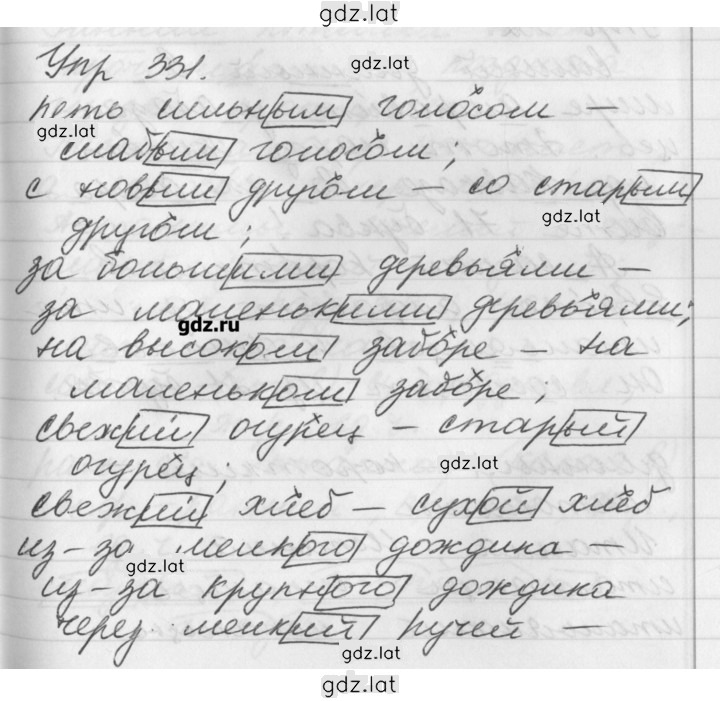 gdz.lat
Упр 331.
gdz.lat
петь сильным голосом –
gdz.lat
слабым голосом;
с новым другом – со старым
gdz.lat
другом;
за большими деревьями –
за маленькими деревьями;
gdz.ru
на высоком заборе – на
маленьком заборе;
свежий огурец – старый
огурец;
gdz.lat
свежий хлеб – сухой хлеб
из-за мелкого дождика –
gdz.lat
из-за крупного дождика
через мелкий ручей –
gdz.lat
gdz.lat